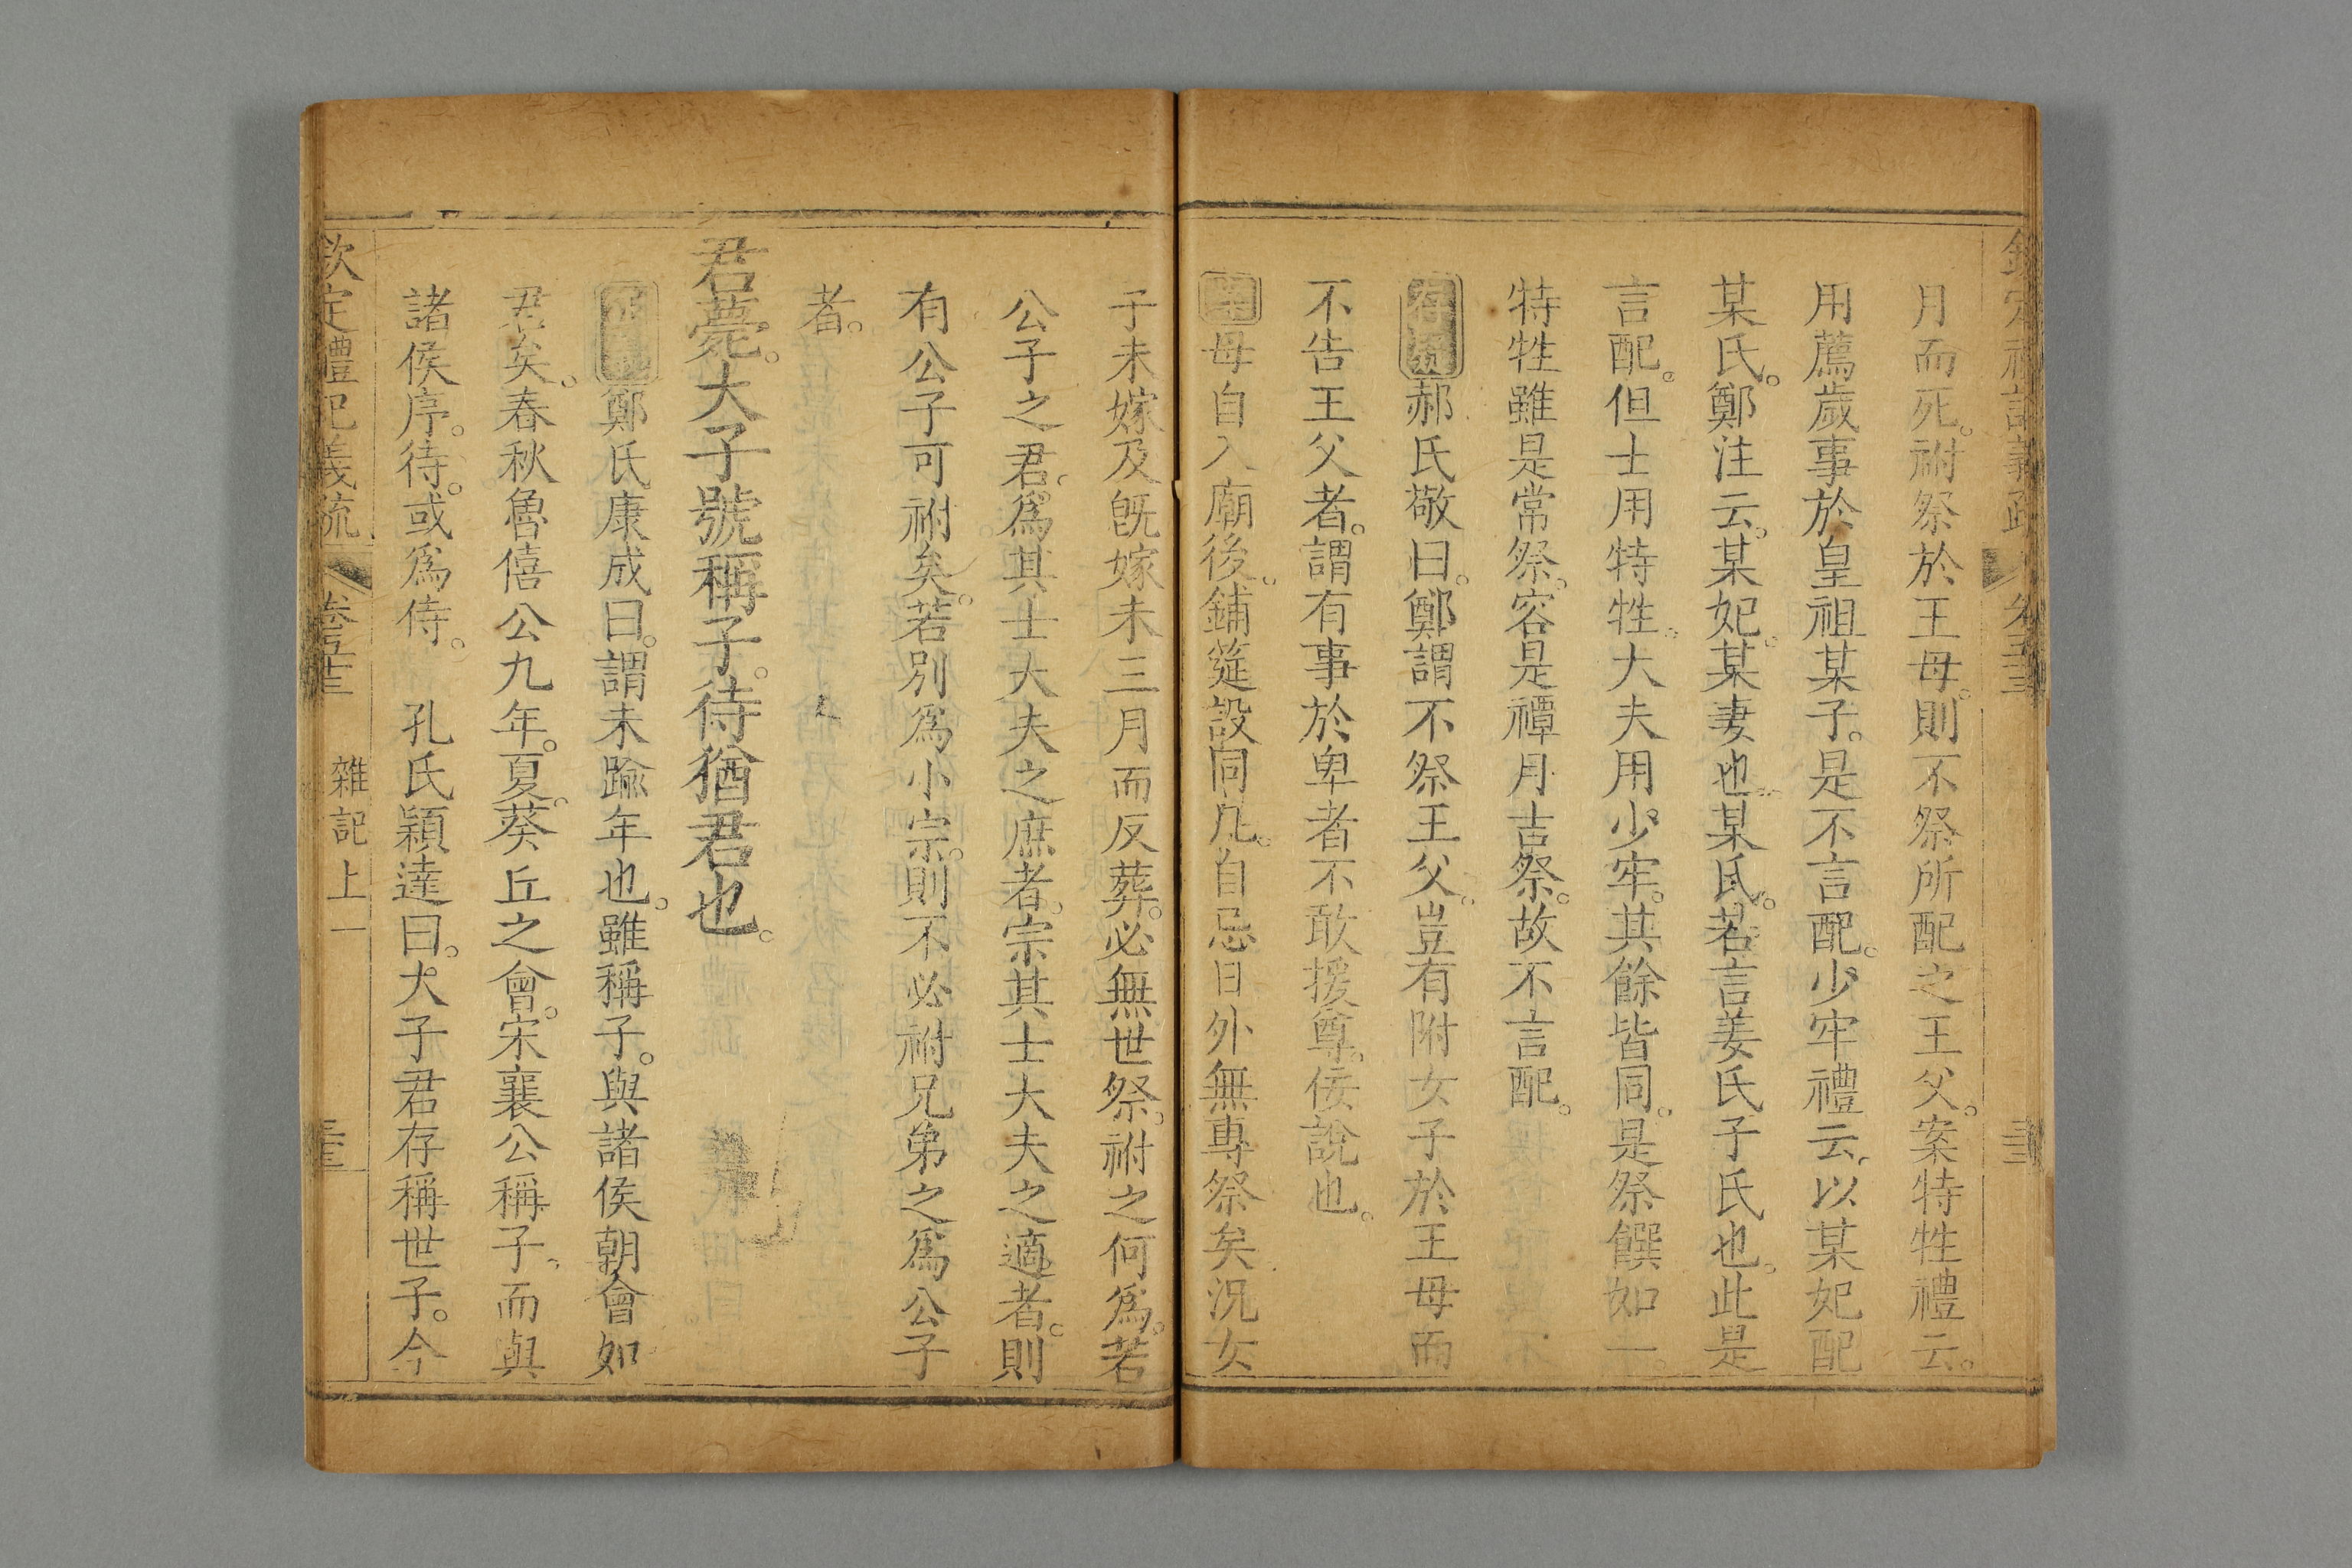 月而死。祔祭於王母。則不祭所配之王父。案特牲禮云。
用薦歲事於皇祖某子。是不言配。少牢禮云。以某妃配
某氏。鄭注云。某妃。某妻也。某氏。若言姜氏子氏也。此是
言配。但士用特牲。大夫用少牢。其餘皆同。是祭饌如一。
特牲雖是常祭。容是禫月吉祭。故不言配。
存疑郝氏敬曰。鄭謂不祭王父。豈有附女子於王母而
不告王父者。謂有事於卑者不敢援尊。佞說也。
案母自入廟後。鋪筵設同几。自忌日外無專祭矣。況女
子未嫁及既嫁未三月而反葬。必無世祭。祔之何爲。若
公子之君。爲其士大夫之庶者。宗其士大夫之適者。則
有公子可祔矣。若別爲小宗。則不必祔兄弟之爲公子
者。
君薨。大子號稱子。待猶君也。
鄭氏康成曰。謂未踰年也。雖稱子。與諸侯朝會如
君矣。春秋魯僖公九年。夏。葵丘之會。宋襄公稱子。而與
諸侯序。待。或爲侍。 孔氏穎達曰。大子君存稱世子。今
欽定禮記義疏 卷五十三 雜記上一